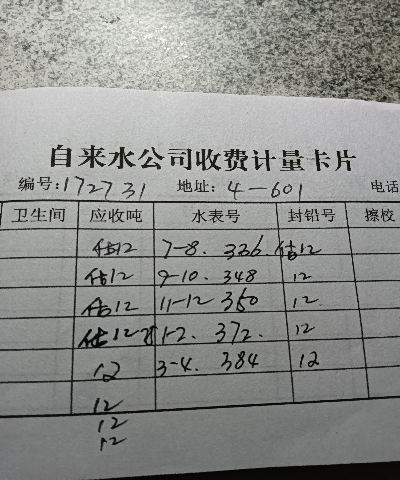 自来水公司收费计量卡片
编号:172731 地址: 4-601 电话
卫生间 应收吨 水表号 封铅号 擦校
估12 7-8. 336 估12
估12 9-10. 348 12
估12 11-12 360 12.
估12 1-2. 372. 12
12 3-4. 384 12
12
12
12